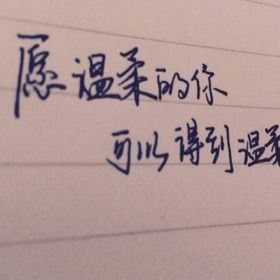 愿温柔的你
可以得到温柔